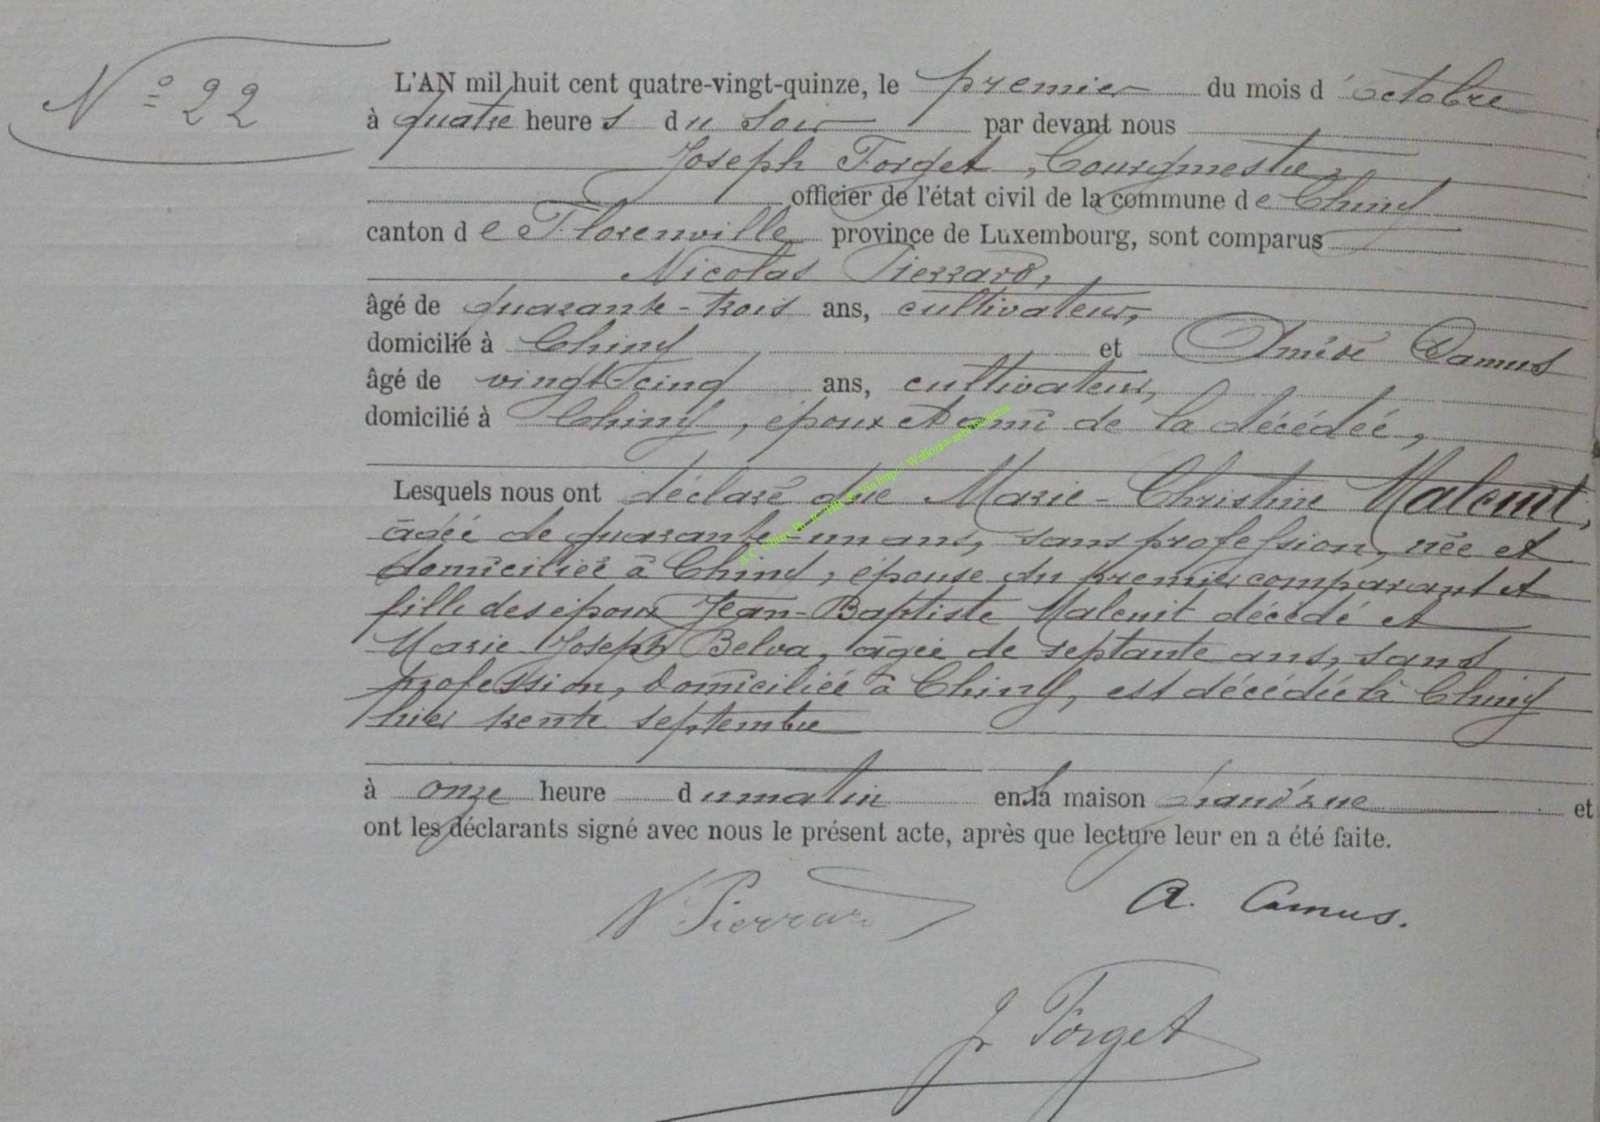 N° 22
L'AN mil huit cent quatre-vingt-quinze, le premier du mois d'octobre
à quatre heures du soir par devant nous
Joseph Forget, Bourgmestre,
officier de l'état civil de la commune de Chiny
canton de Florenville province de Luxembourg, sont comparus
Nicolas Pierrard,
âgé de quarante-trois ans, cultivateur,
domicilié à Chiny, et Amédé Camus
âgé de vingt cinq ans, cultivateur,
domicilié à Chiny, époux et ami de la décédée,
Lesquels nous ont déclaré que Marie-Christine Maleuit,
âgée de quarante-un ans, sans profession, née et
domiciliée à Chiny, épouse du premier comparant et
fille des époux Jean-Baptiste Maleuit décédé et
Marie Joseph Belva, âgée de septante ans, sans
profession, domiciliée à Chiny, est décédée à Chiny
hier trente septembre
à onze heure du matin en la maison Grand'rue et
ont les déclarants signé avec nous le présent acte, après que lecture leur en a été faite.
N Pierrard
A. Camus.
J Forget